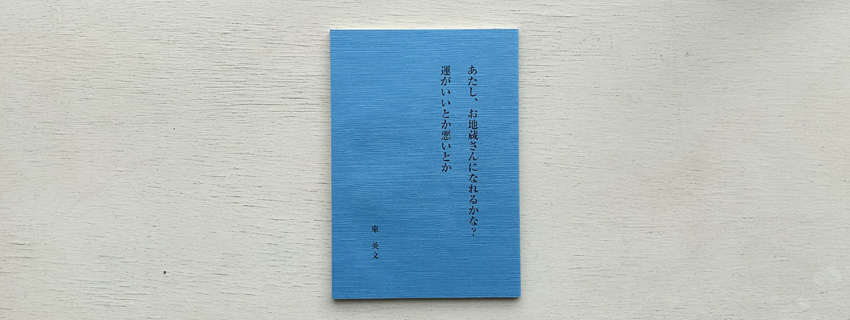 あたし、お地蔵さんになれるかな?
運がいいとか悪いとか
東 英文